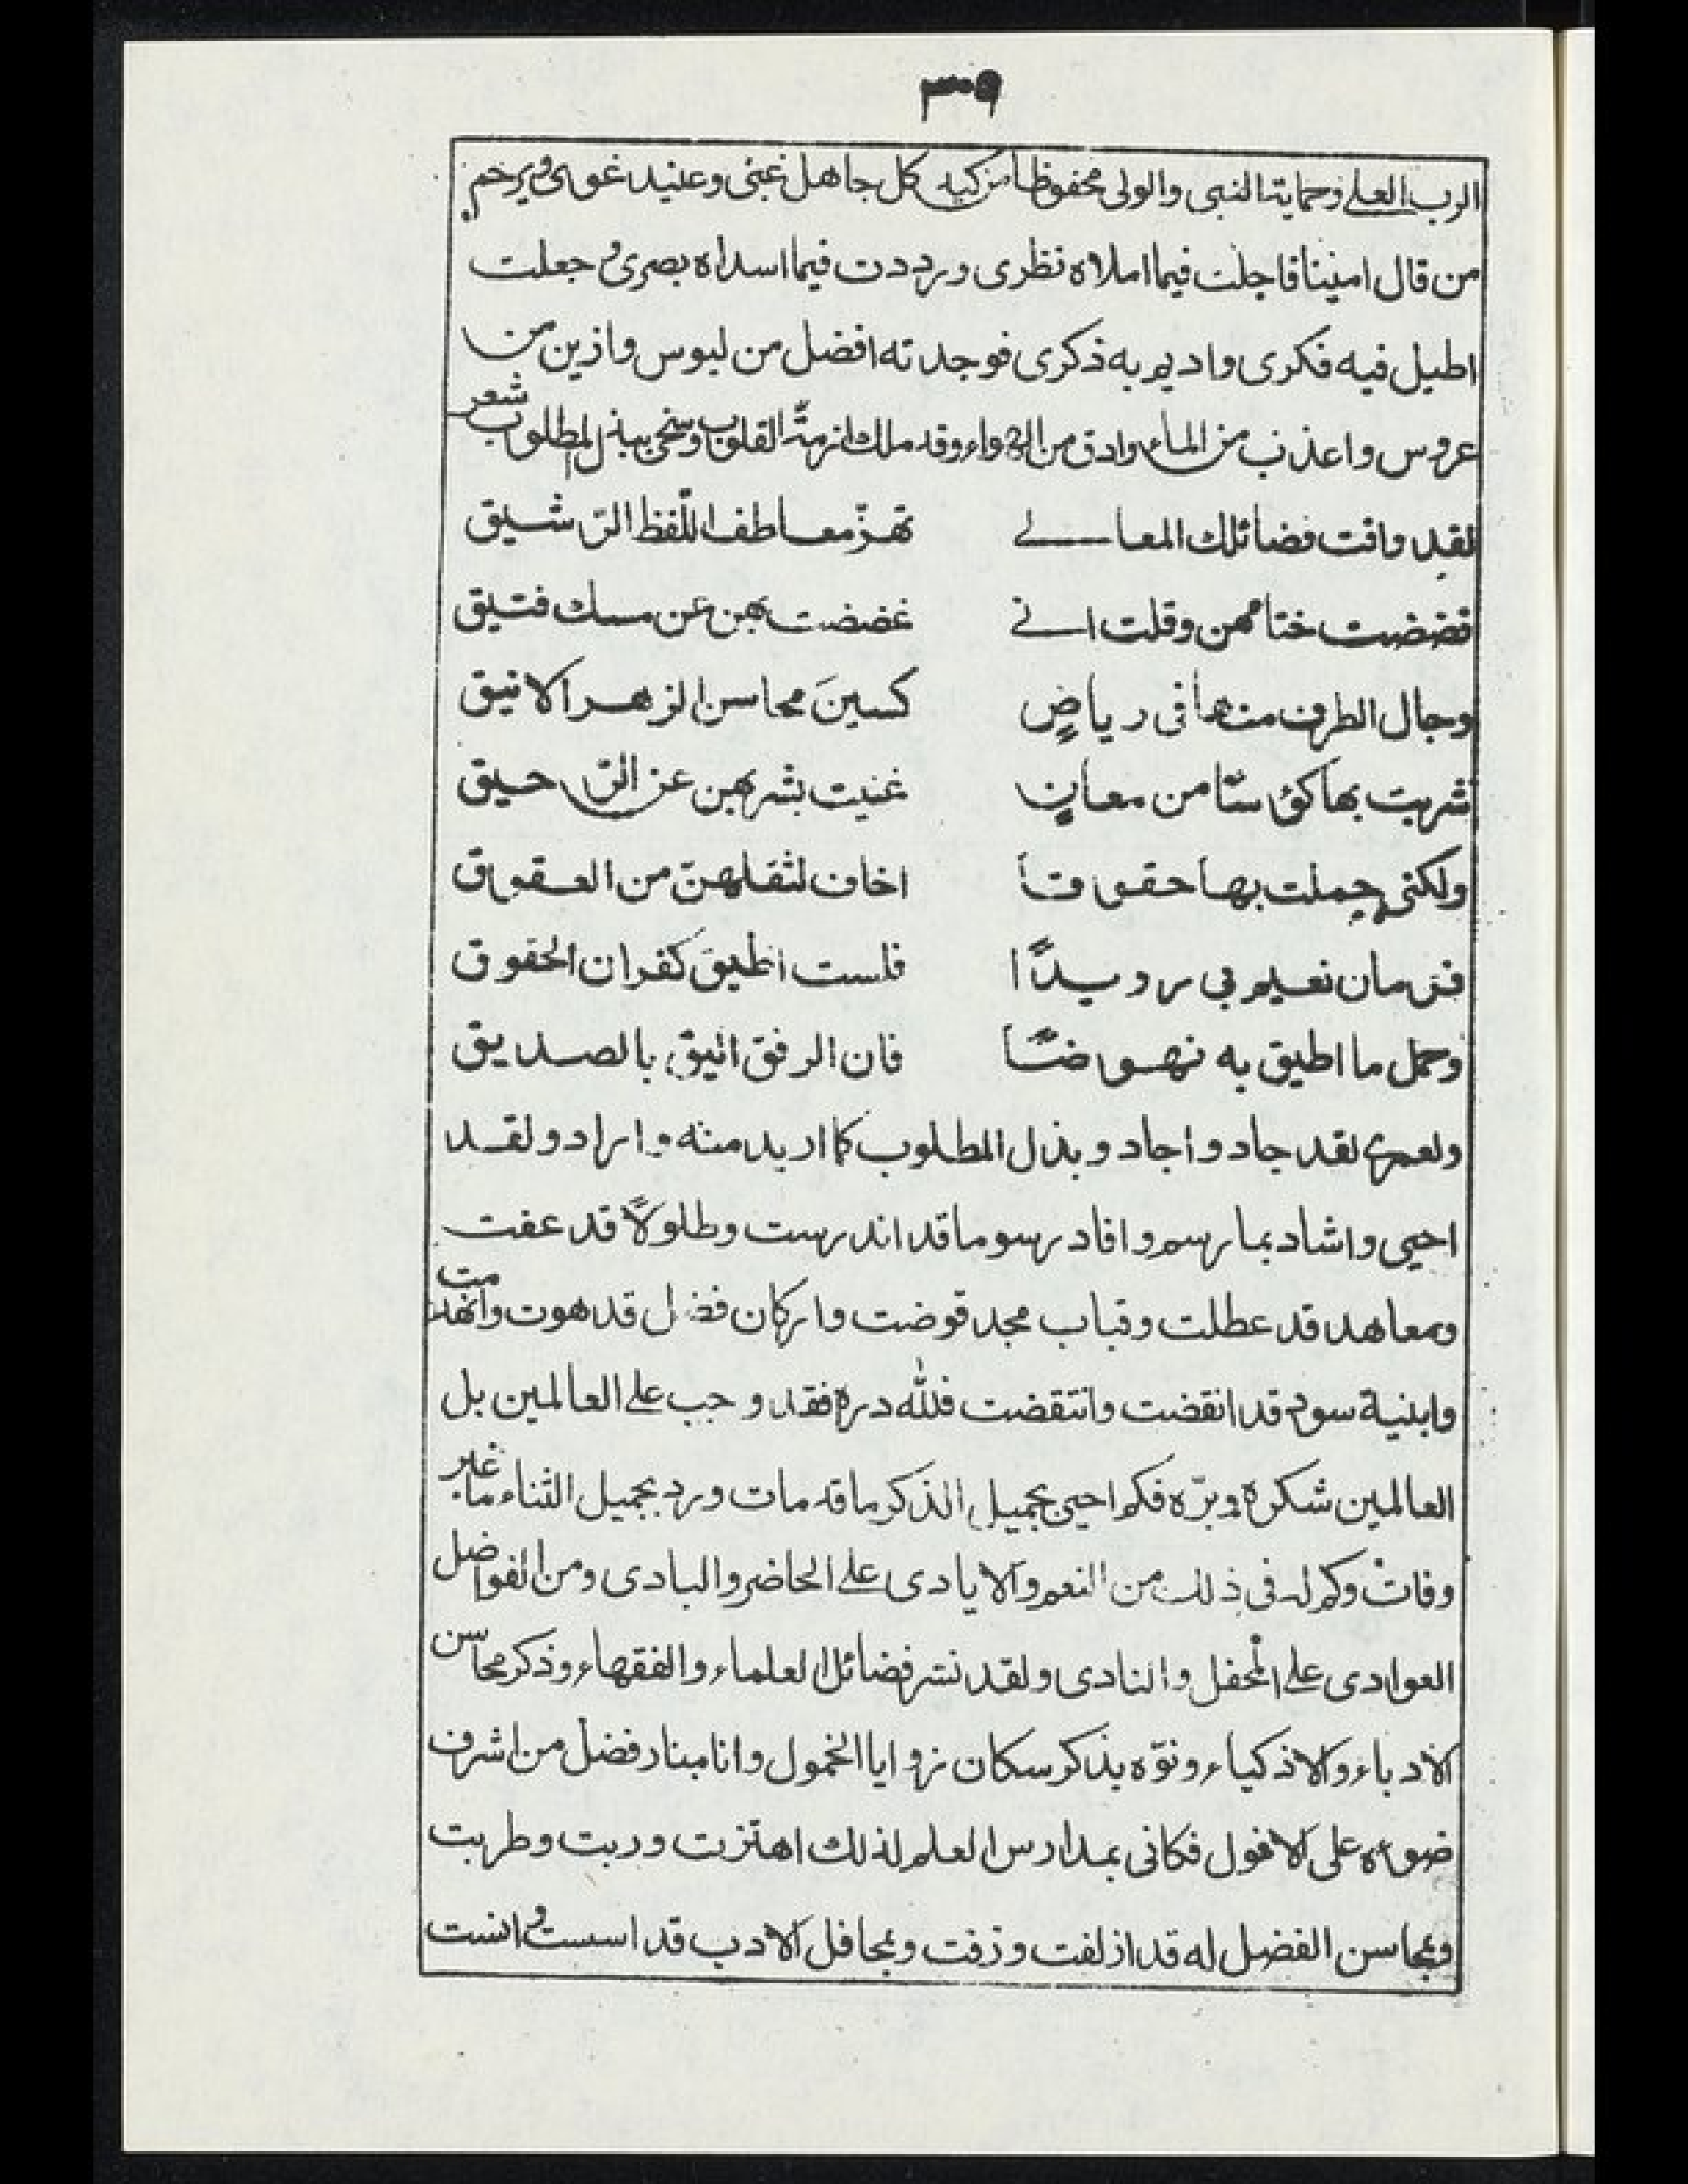 ٣٠٩
الرب العلے وحماية النبى والولى محفوظا من كيد كل جاهل غبى وعنيد غوى ويرحم
من قال امينا فاجلت فيما املاه نظرى ورددت فيما اسداه بصرى و جعلت
اطيل فيه فكرى واديم به ذكرى فوجدته افضل من لبوس وازين من
عروس واعذب من الماء وادق من الهواء وقد ملك ازمّة القلوب وسخى ببذل المطلوب شعر
لقد وافت فضائلك المعالے تهزّ معاطف اللّفظ الرّشيق
فضضت ختامهن وقلت انے غضضت بهن عن مسك فتيق
وجال الطرف منها فى رياضٍ كسينَ محاسن الزهر الانيق
شربت بها كؤسًا من معانٍ غنيت بشربهن عن الرّحيق
ولكنى حملت بها حقوقاً اخاف لثقلهنّ من العقوق
فى مان نعيم بى رويدًا فلست اطيق كفران الحقوق
وحمل ما اطيق به نهوضًا فان الرفق انيق بالصديق
ولعمرى لقد جاد واجاد وبذل المطلوب كما اريد منه واراد ولقد
احيى واشاد بما رسم وافاد رسوما قد اندرست وطلولًا قد عفت
ومعاهد قد عطلت وقباب مجد قوضت واركان فضل قد هوت وانهدمت
وابنية سودد قد انقضت وانتقضت فلله دره فقد وجب علے العالمين بل
العالمين شكره وبرّه فكم احيى بجميل الذكر ما قد مات ورد بجميل الثناء ما غبر
وفات وكم له فى ذلك من النعم والايادى علے الحاضر والبادى ومن الفواضل
العوادى علے المحفل والنادى ولقد نشر فضائل العلماء والفقهاء وذكر محاسن
الادباء والاذكياء ونوّه بذكر سكان زوايا الخمول وانا بمنار فضل من اشرف
ضوءه على الافول فكانى بمدارس العلم لذلك اهتزت وربت وطربت
وبمحاسن الفضل له قد ازلفت وزفت وبمحافل الادب قد اسست و انست